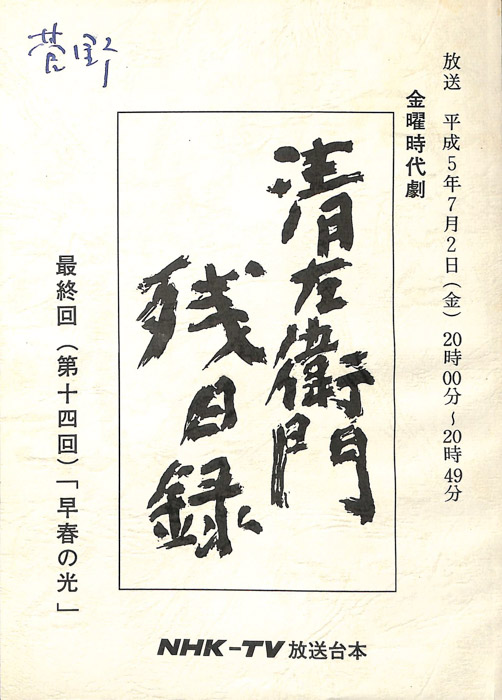 菅野
放送 平成5年7月2日(金) 20時00分～20時49分
金曜時代劇
清左衛門
残日録
最終回(第十四回)「早春の光」
NHK-TV 放送台本